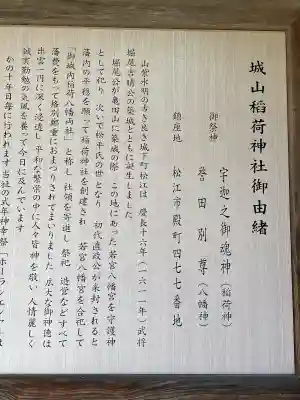 城山稲荷神社御由緒
御祭神 宇迦之御魂神（稲荷神）
誉田別尊（八幡神）
鎮座地 松江市殿町四七七番地
山紫水明の香き良き城下町松江は 慶長十六年（一六一一年）武将
堀尾吉晴公の築城とともに誕生しました
堀尾公が亀田山に築城の際 この地にあった若宮八幡宮を守護神
として祀り 次いで松平氏の世となり 初代直政公が来封されると
藩内の平穏を願って稲荷神社を創建され 若宮八幡宮を合祀して
「御城内稲荷八幡両社」と称し 社領を寄進し 祭祀 造営などすべて
藩費をもって格別鄭重におまつりされてまいりました 広大な御神徳は
出雲一円に深く浸透し 平和な繁栄の中に人々皆神を敬い 人情麗しく
誠実勤勉の気風を養って今日に及んでいます
かの十年目毎に行われます当社の式年神幸祭「ホーランエンヤ」は